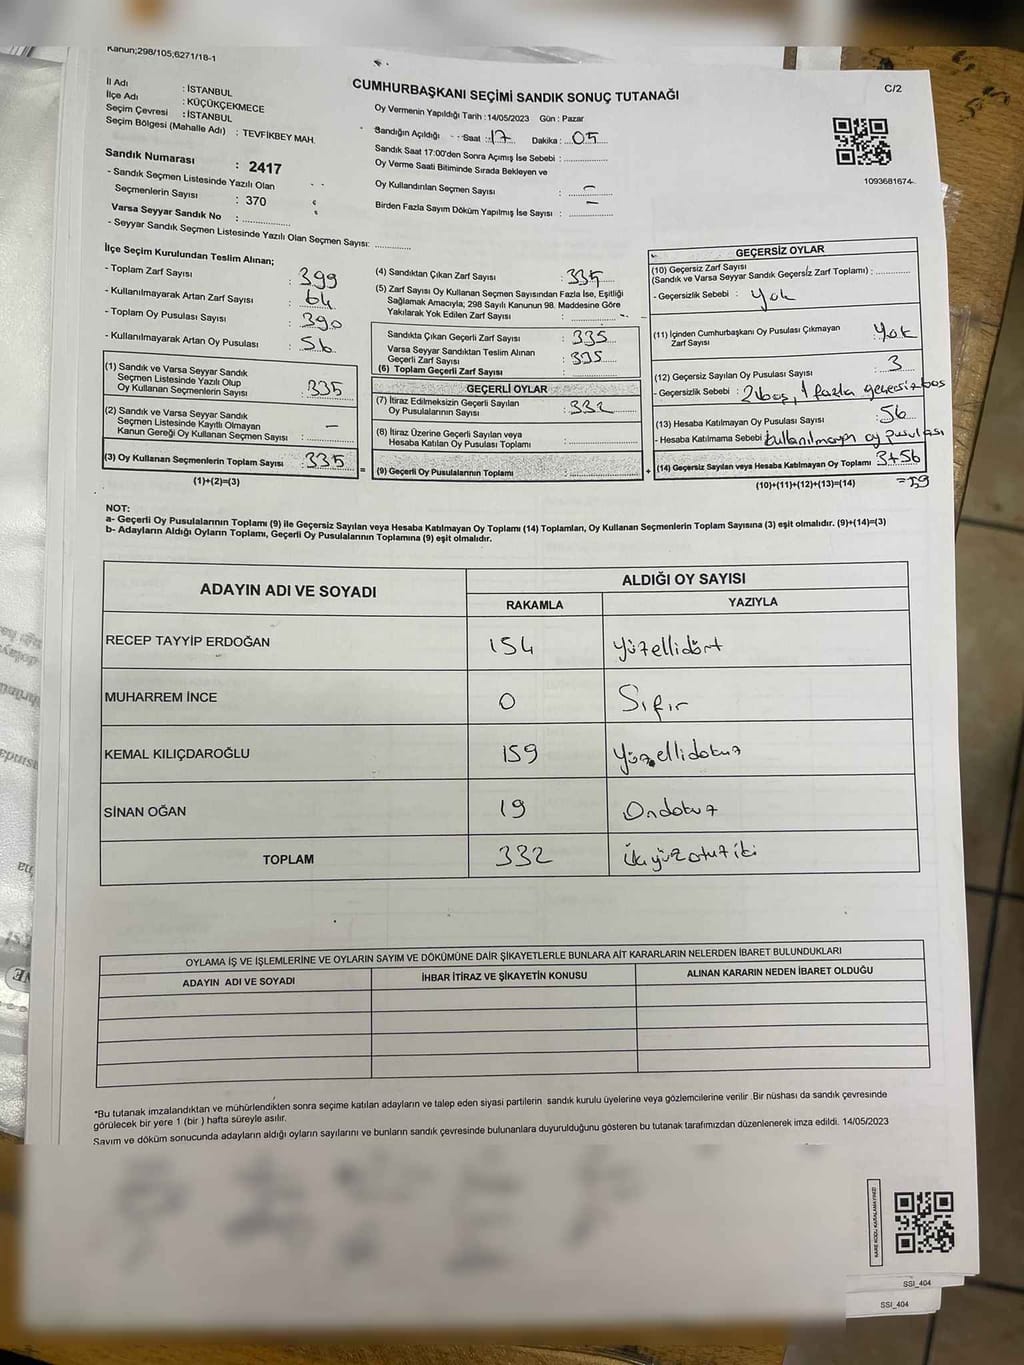 Kanun;298/105;6271/18-1
C/2
CUMHURBAŞKANI SEÇİMİ SANDIK SONUÇ TUTANAĞI
İl Adı : İSTANBUL
İlçe Adı : KÜÇÜKÇEKMECE
Seçim Çevresi : İSTANBUL
Seçim Bölgesi (Mahalle Adı) : TEVFİKBEY MAH.
Sandık Numarası : 2417
- Sandık Seçmen Listesinde Yazılı Olan
Seçmenlerin Sayısı : 370
Varsa Seyyar Sandık No : ................
- Seyyar Sandık Seçmen Listesinde Yazılı Olan Seçmen Sayısı: ............
Oy Vermenin Yapıldığı Tarih : 14/05/2023 Gün : Pazar
Sandığın Açıldığı Saat : 17 Dakika : 05
Sandık Saat 17:00'den Sonra Açımış İse Sebebi : ................
Oy Verme Saati Bitiminde Sırada Bekleyen ve
Oy Kullandırılan Seçmen Sayısı : –
Birden Fazla Sayım Döküm Yapılmış İse Sayısı : –
1093681674
İlçe Seçim Kurulundan Teslim Alınan;
- Toplam Zarf Sayısı : 399
- Kullanılmayarak Artan Zarf Sayısı : 64
- Toplam Oy Pusulası Sayısı : 390
- Kullanılmayarak Artan Oy Pusulası : 56
(1) Sandık ve Varsa Seyyar Sandık
Seçmen Listesinde Yazılı Olup
Oy Kullanan Seçmenlerin Sayısı : 335
(2) Sandık ve Varsa Seyyar Sandık
Seçmen Listesinde Kayıtlı Olmayan
Kanun Gereği Oy Kullanan Seçmen Sayısı : –
(3) Oy Kullanan Seçmenlerin Toplam Sayısı : 335
(1)+(2)=(3)
(4) Sandıktan Çıkan Zarf Sayısı : 335
(5) Zarf Sayısı Oy Kullanan Seçmen Sayısından Fazla İse, Eşitliği
Sağlamak Amacıyla; 298 Sayılı Kanunun 98. Maddesine Göre
Yakılarak Yok Edilen Zarf Sayısı : ............
Sandıkta Çıkan Geçerli Zarf Sayısı : 335
Varsa Seyyar Sandıktan Teslim Alınan
Geçerli Zarf Sayısı : 335
(6) Toplam Geçerli Zarf Sayısı : ............
GEÇERLİ OYLAR
(7) İtiraz Edilmeksizin Geçerli Sayılan
Oy Pusulalarının Sayısı : 332
(8) İtiraz Üzerine Geçerli Sayılan veya
Hesaba Katılan Oy Pusulası Toplamı : ............
(9) Geçerli Oy Pusulalarının Toplamı : ............
GEÇERSİZ OYLAR
(10) Geçersiz Zarf Sayısı
(Sandık ve Varsa Seyyar Sandık Geçersiz Zarf Toplamı) : ............
- Geçersizlik Sebebi : Yok
(11) İçinden Cumhurbaşkanı Oy Pusulası Çıkmayan
Zarf Sayısı : Yok
(12) Geçersiz Sayılan Oy Pusulası Sayısı : 3
- Geçersizlik Sebebi : 2 boş, 1 fazla geçersiz bos
(13) Hesaba Katılmayan Oy Pusulası Sayısı : 56
- Hesaba Katılmama Sebebi : kullanılmayan oy pusulası
(14) Geçersiz Sayılan veya Hesaba Katılmayan Oy Toplamı : 3+56
=59
(10)+(11)+(12)+(13)=(14)
NOT:
a- Geçerli Oy Pusulalarının Toplamı (9) ile Geçersiz Sayılan veya Hesaba Katılmayan Oy Toplamı (14) Toplamları, Oy Kullanan Seçmenlerin Toplam Sayısına (3) eşit olmalıdır. (9)+(14)=(3)
b- Adayların Aldığı Oyların Toplamı, Geçerli Oy Pusulalarının Toplamına (9) eşit olmalıdır.
ADAYIN ADI VE SOYADI
ALDIĞI OY SAYISI
RAKAMLA YAZIYLA
RECEP TAYYİP ERDOĞAN 154 Yüzellidört
MUHARREM İNCE 0 Sıfır
KEMAL KILIÇDAROĞLU 159 Yüzellidokuz
SİNAN OĞAN 19 Ondokuz
TOPLAM 332 ikiyüzotuziki
OYLAMA İŞ VE İŞLEMLERİNE VE OYLARIN SAYIM VE DÖKÜMÜNE DAİR ŞİKAYETLERLE BUNLARA AİT KARARLARIN NELERDEN İBARET BULUNDUKLARI
ADAYIN ADI VE SOYADI
İHBAR İTİRAZ VE ŞİKAYETİN KONUSU
ALINAN KARARIN NEDEN İBARET OLDUĞU
*Bu tutanak imzalandıktan ve mühürlendikten sonra seçime katılan adayların ve talep eden siyasi partilerin sandık kurulu üyelerine veya gözlemcilerine verilir .Bir nüshası da sandık çevresinde
görülecek bir yere 1 (bir ) hafta süreyle asılır.
Sayım ve döküm sonucunda adayların aldığı oyların sayılarını ve bunların sandık çevresinde bulunanlara duyurulduğunu gösteren bu tutanak tarafımızdan düzenlenerek imza edildi. 14/05/2023
KARE KODU KARALAMAYINIZ!
SSI_404
SSI_404